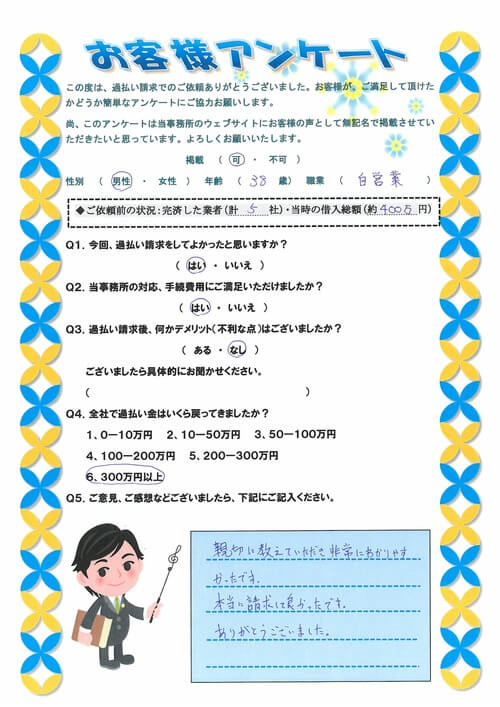 お客様アンケート
この度は、過払い請求でのご依頼ありがとうございました。お客様が、ご満足して頂けた
かどうか簡単なアンケートにご協力お願いします。
尚、このアンケートは当事務所のウェブサイトにお客様の声として無記名で掲載させてい
ただきたいと思っています。よろしくお願いいたします。
掲載 ( 可 ・ 不可 )
性別 ( 男性 ・ 女性 ) 年齢 ( 38 歳) 職業 ( 自営業 )
◆ご依頼前の状況:完済した業者(計 5 社)・当時の借入総額(約400万円)
Q1. 今回、過払い請求をしてよかったと思いますか?
( はい ・ いいえ )
Q2. 当事務所の対応、手続費用にご満足いただけましたか?
( はい ・ いいえ )
Q3. 過払い請求後、何かデメリット(不利な点)はございましたか?
( ある ・ なし )
ございましたら具体的にお聞かせください。
( )
Q4. 全社で過払い金はいくら戻ってきましたか?
1、0ー10万円 2、10ー50万円 3、50ー100万円
4、100ー200万円 5、200ー300万円
6、300万円以上
Q5. ご意見、ご感想などございましたら、下記にご記入ください。
親切に教えていただき非常にわかりやす
かったです。
本当に請求して良かったです。
ありがとうございました。